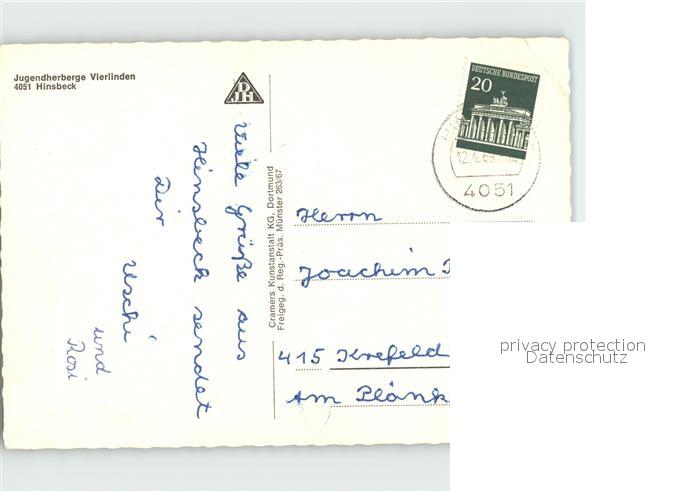 Jugendherberge Vierlinden
4051 Hinsbeck
DJH
DEUTSCHE BUNDESPOST
20
4051
Viele Grüße aus
Hinsbeck sendet
Dir
Uschi
und
Rosi
Cramers Kunstanstalt KG, Dortmund
Freigeg. d. Reg.-Präs. Münster 263/67
Herrn
Joachim
415 Krefeld
Am Plänk
privacy protection
Datenschutz